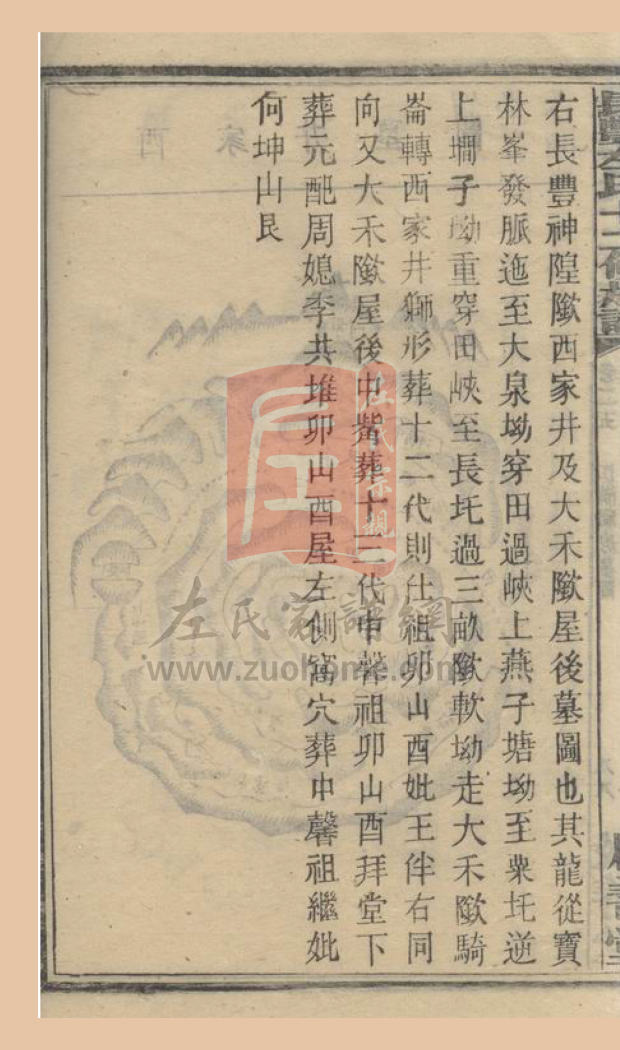 右長豐神隍歘西家井及大禾歘屋後墓圖也其龍從寶
林峯發脈迤至大泉坳穿田過峽上燕子塘坳至粟圫逆
上墹子坳重穿田峽至長圫過三畝歘軟坳走大禾歘騎
崙轉西家井獅形葬十二代則仕祖卯山酉妣王伴右同
向又大禾歘屋後中嘴葬十三代中馨祖卯山酉拜堂下
葬元配周媳李共堆卯山酉屋左側窩穴葬中馨祖繼妣
何坤山艮
左氏宗親
左氏家譜網
www.zuohome.com